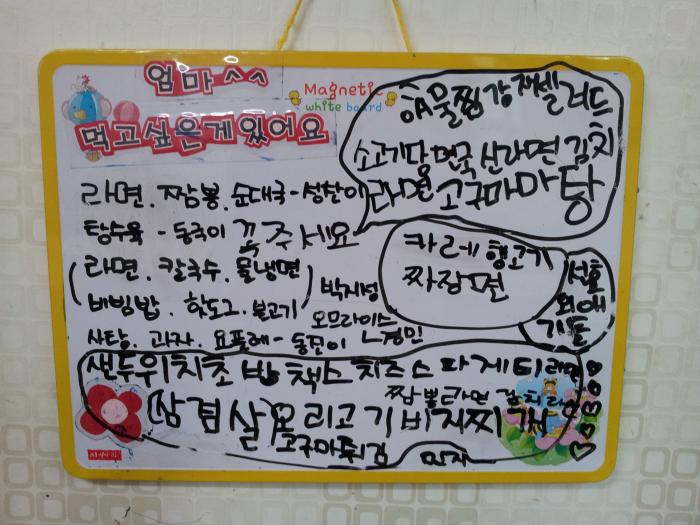 엄마^^
Magnetic
white board
먹고싶은게있어요
해물찜 간장게 샐러드
소고기당면국 신라면 김치
라면 고구마마탕
라면. 짬뽕. 순대국-성찬이
탕수육 - 동국이 꼭주세요
카레 형고기
짜장면
라면. 칼국수. 물냉면
비빔밥. 핫도그. 불고기
박지성
오므라이스
사탕. 과자. 요플레- 동진이
ㄴ경민
선호
외애
기들
샌두위치초밥 책스치즈스파게티라면
짬뽕라면 갈치
삼겹살오리고기비지찌개
고구마튀김 민지